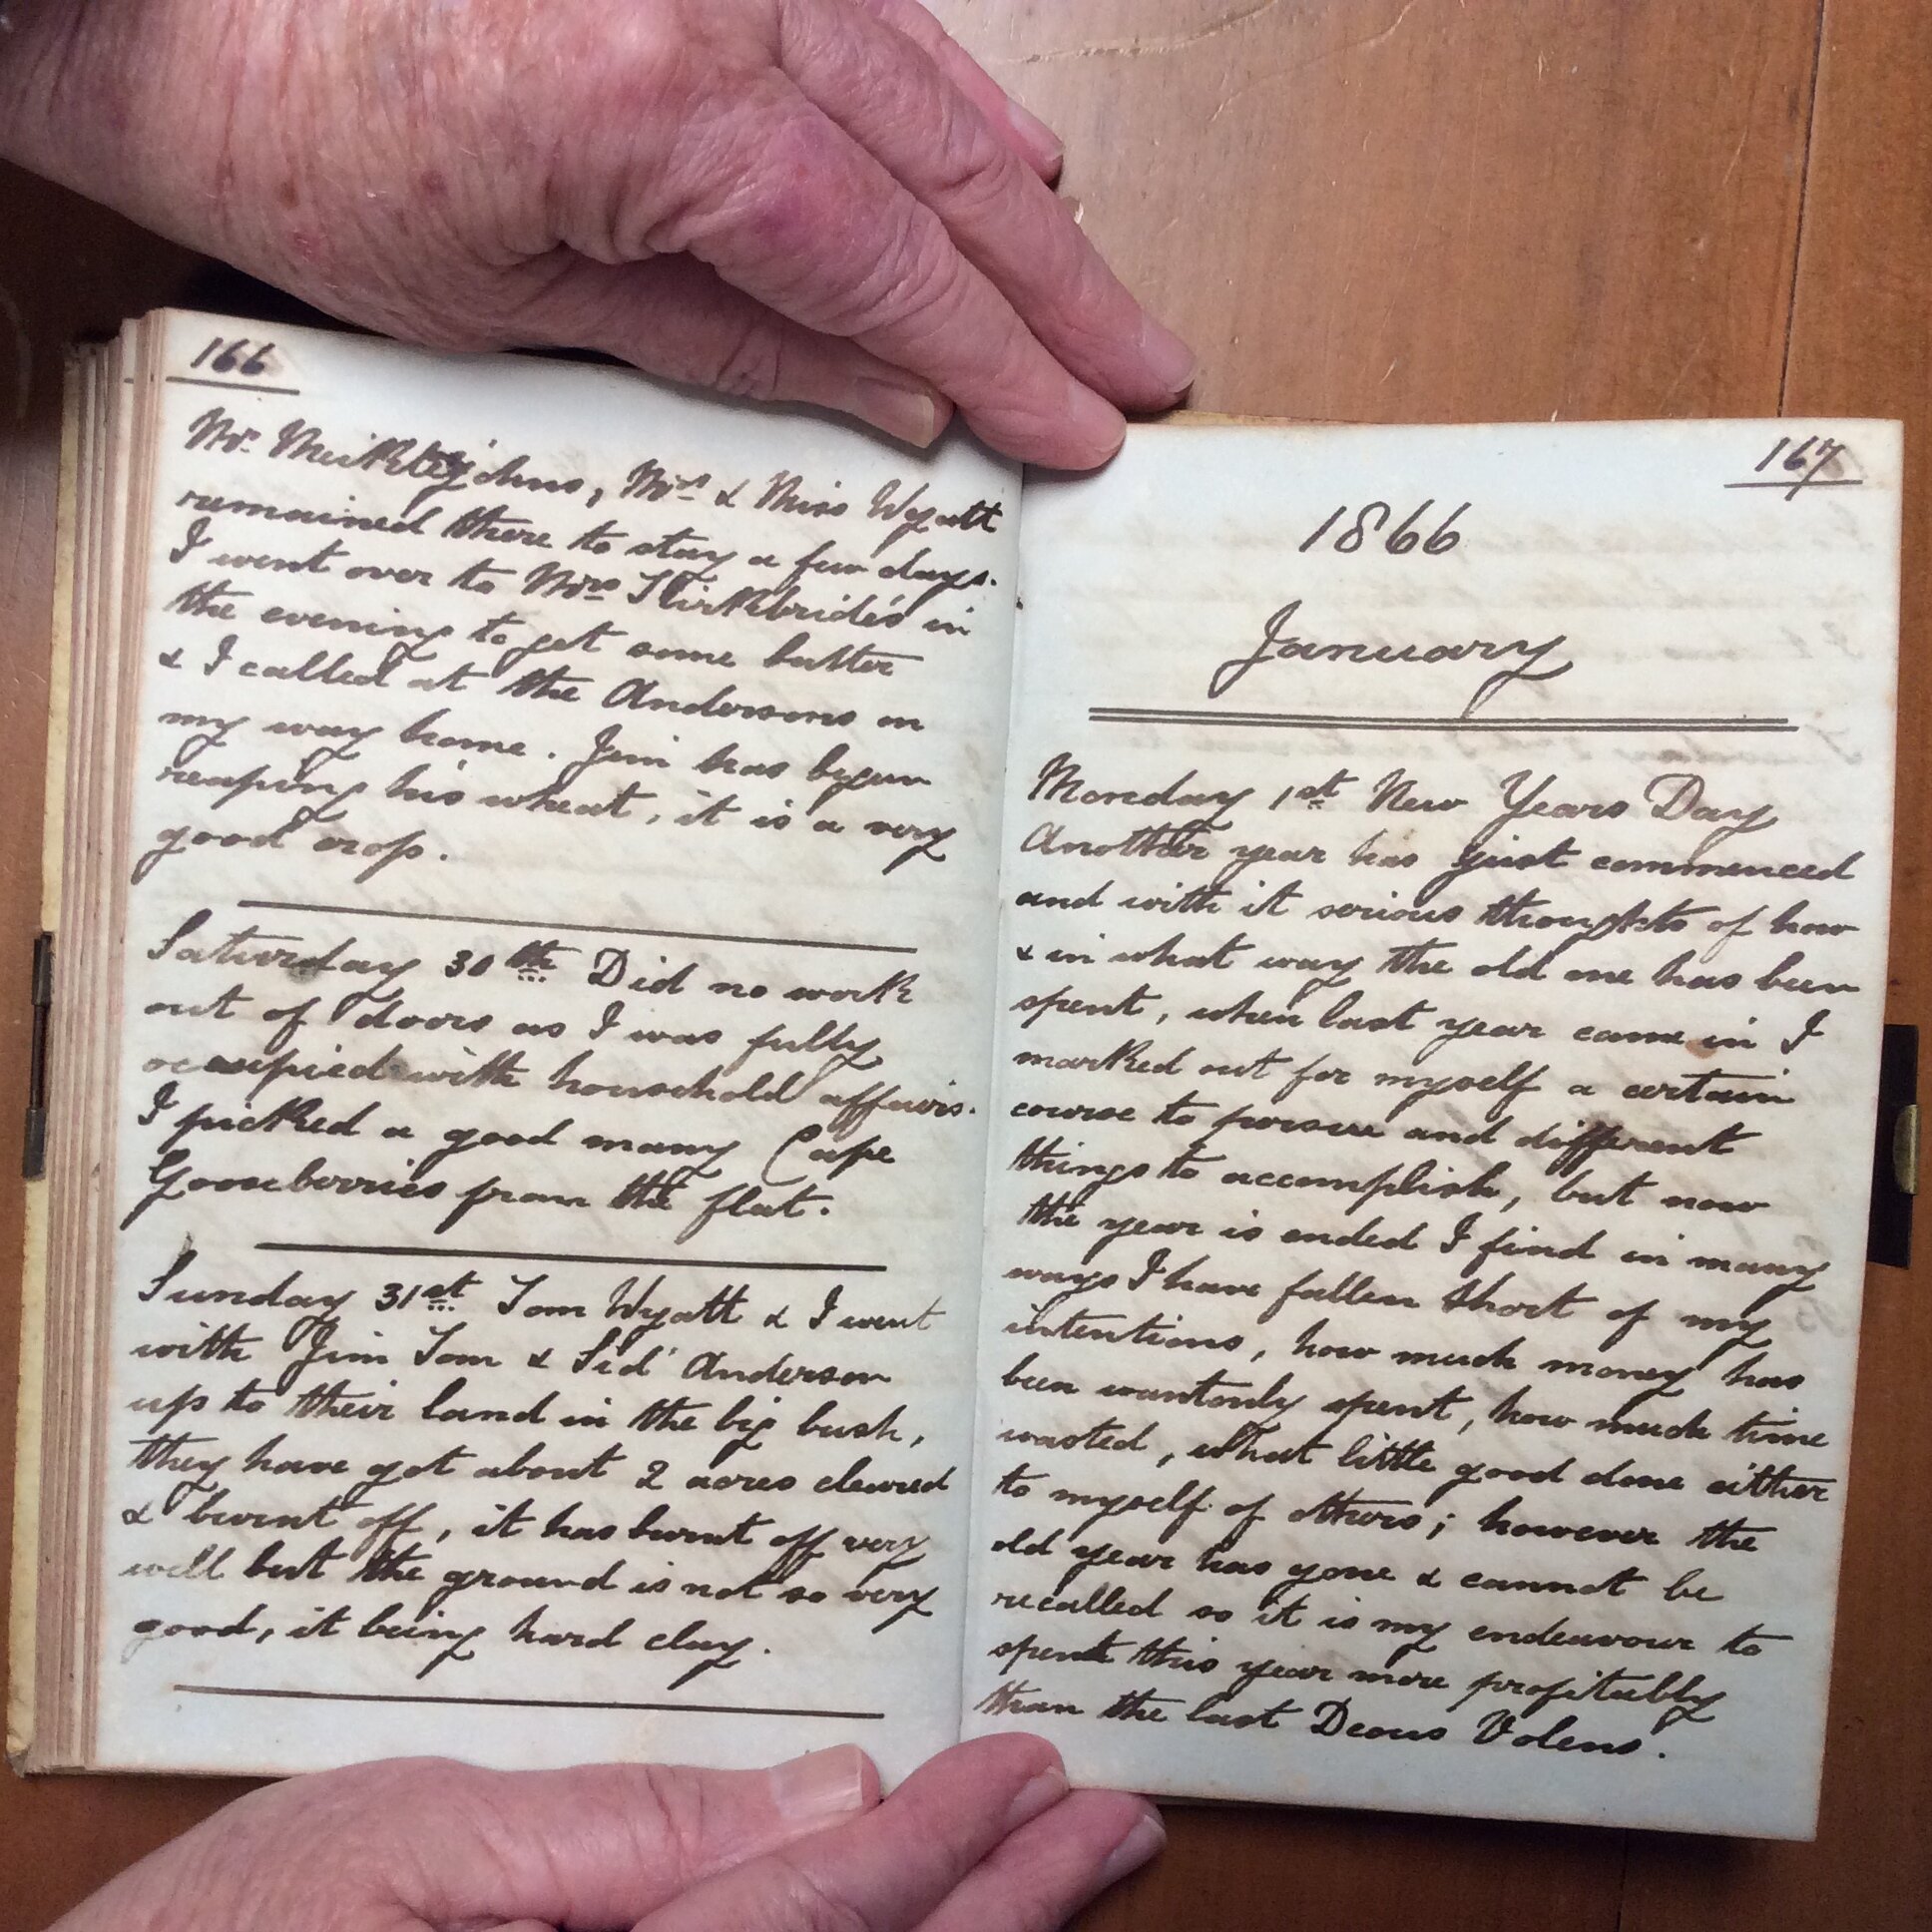 166
Mr. Meiklejohns, Mrs & Miss Wyatt
remained there to stay a few days.
I went over to Mrs Kirkbride's in
the evening to get some butter
& I called at the Andersons on
my way home. Jim has begun
reaping his wheat, it is a very
good crop.
Saturday 30th Did no work
out of doors as I was fully
occupied with household affairs.
I picked a good many Cape
Gooseberries from the flat.
Sunday 31st Tom Wyatt & I went
with Jim Tom & Sid' Anderson
up to their land in the big bush,
they have got about 2 acres cleared
& burnt off, it has burnt off very
well but the ground is not so very
good, it being hard clay.
167
1866
January
Monday 1st New Years Day
Another year has just commenced
and with it serious thoughts of how
& in what way the old one has been
spent, when last year came in I
marked out for myself a certain
course to persue and different
things to accomplish, but now
the year is ended I find in many
ways I have fallen short of my
intentions, how much money has
been wantonly spent, how much time
wasted, what little good done either
to myself of others; however the
old year has gone & cannot be
recalled so it is my endeavour to
spent this year more profitably
than the last Deous Volens.